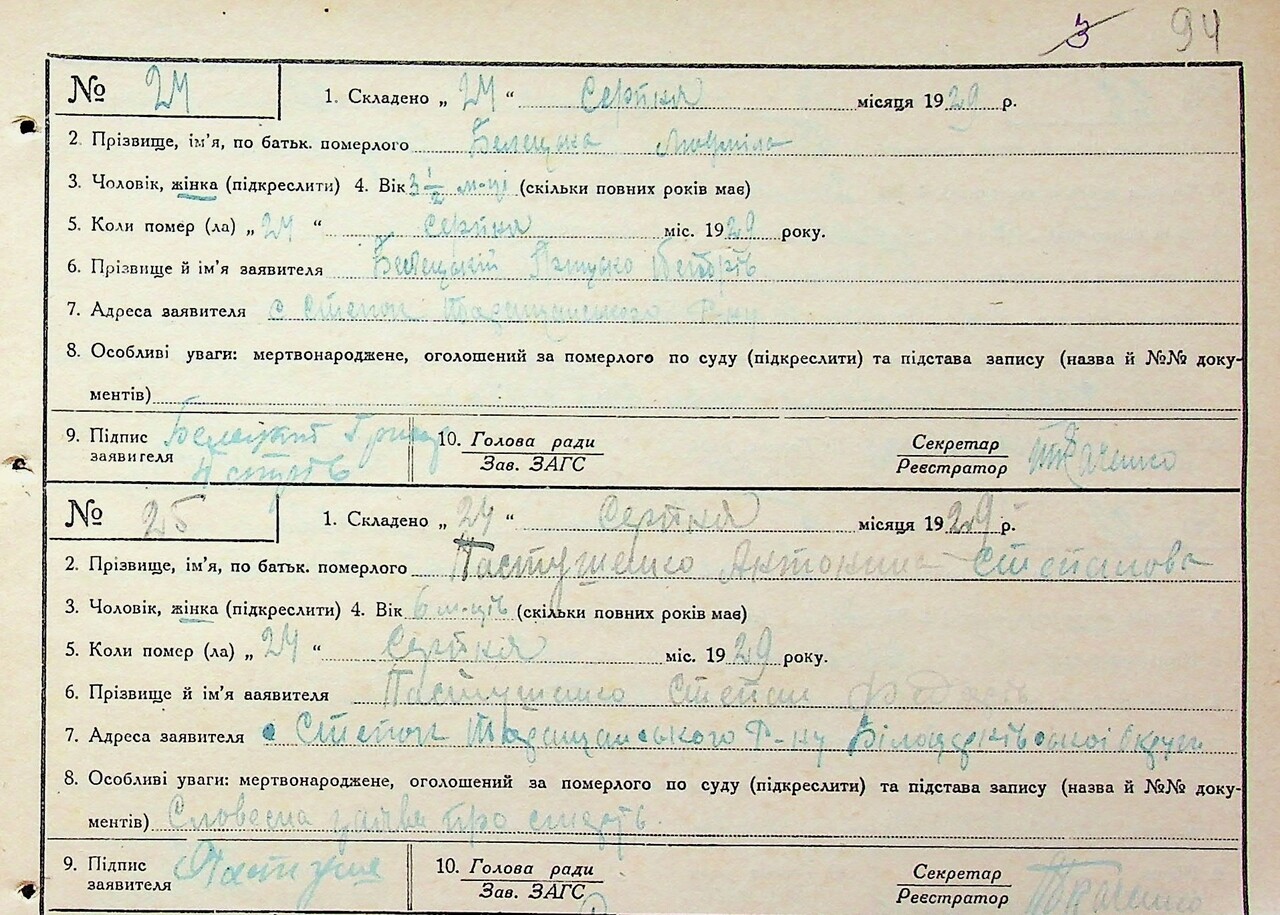 3 94
№ 24 1. Складено „ 24 “ Серпня місяця 1929 р.
2. Прізвище, ім'я, по батьк. померлого Белецька Людміла
3. Чоловік, жінка (підкреслити) 4. Вік 3 1/2 м-ці (скільки повних років має)
5. Коли помер (ла) „ 24 “ серпня міс. 1929 року.
6. Прізвище й ім'я заявителя Белецький
7. Адреса заявителя с Степок Таращанського Р-ну
8. Особливі уваги: мертвонароджене, оголошений за померлого по суду (підкреслити) та підстава запису (назва й №№ доку-
ментів)
9. Підпис заявителя Белецкий 10. Голова ради Секретар
Зав. ЗАГС Реєстратор Ткаченко
№ 25 1. Складено „ 24 “ Серпня місяця 1929 р.
2. Прізвище, ім'я, по батьк. померлого Пастушенко Антонина Степанова
3. Чоловік, жінка (підкреслити) 4. Вік 6 м-ців (скільки повних років має)
5. Коли помер (ла) „ 24 “ Серпня міс. 1929 року.
6. Прізвище й ім'я заявителя Пастушенко Степан
7. Адреса заявителя с Степок Таращанського Р-ну Білоцерківської Округи
8. Особливі уваги: мертвонароджене, оголошений за померлого по суду (підкреслити) та підстава запису (назва й №№ доку-
ментів) Словесна заява про смерть.
9. Підпис заявителя Пастуше 10. Голова ради Секретар
Зав. ЗАГС Реєстратор Ткаченко